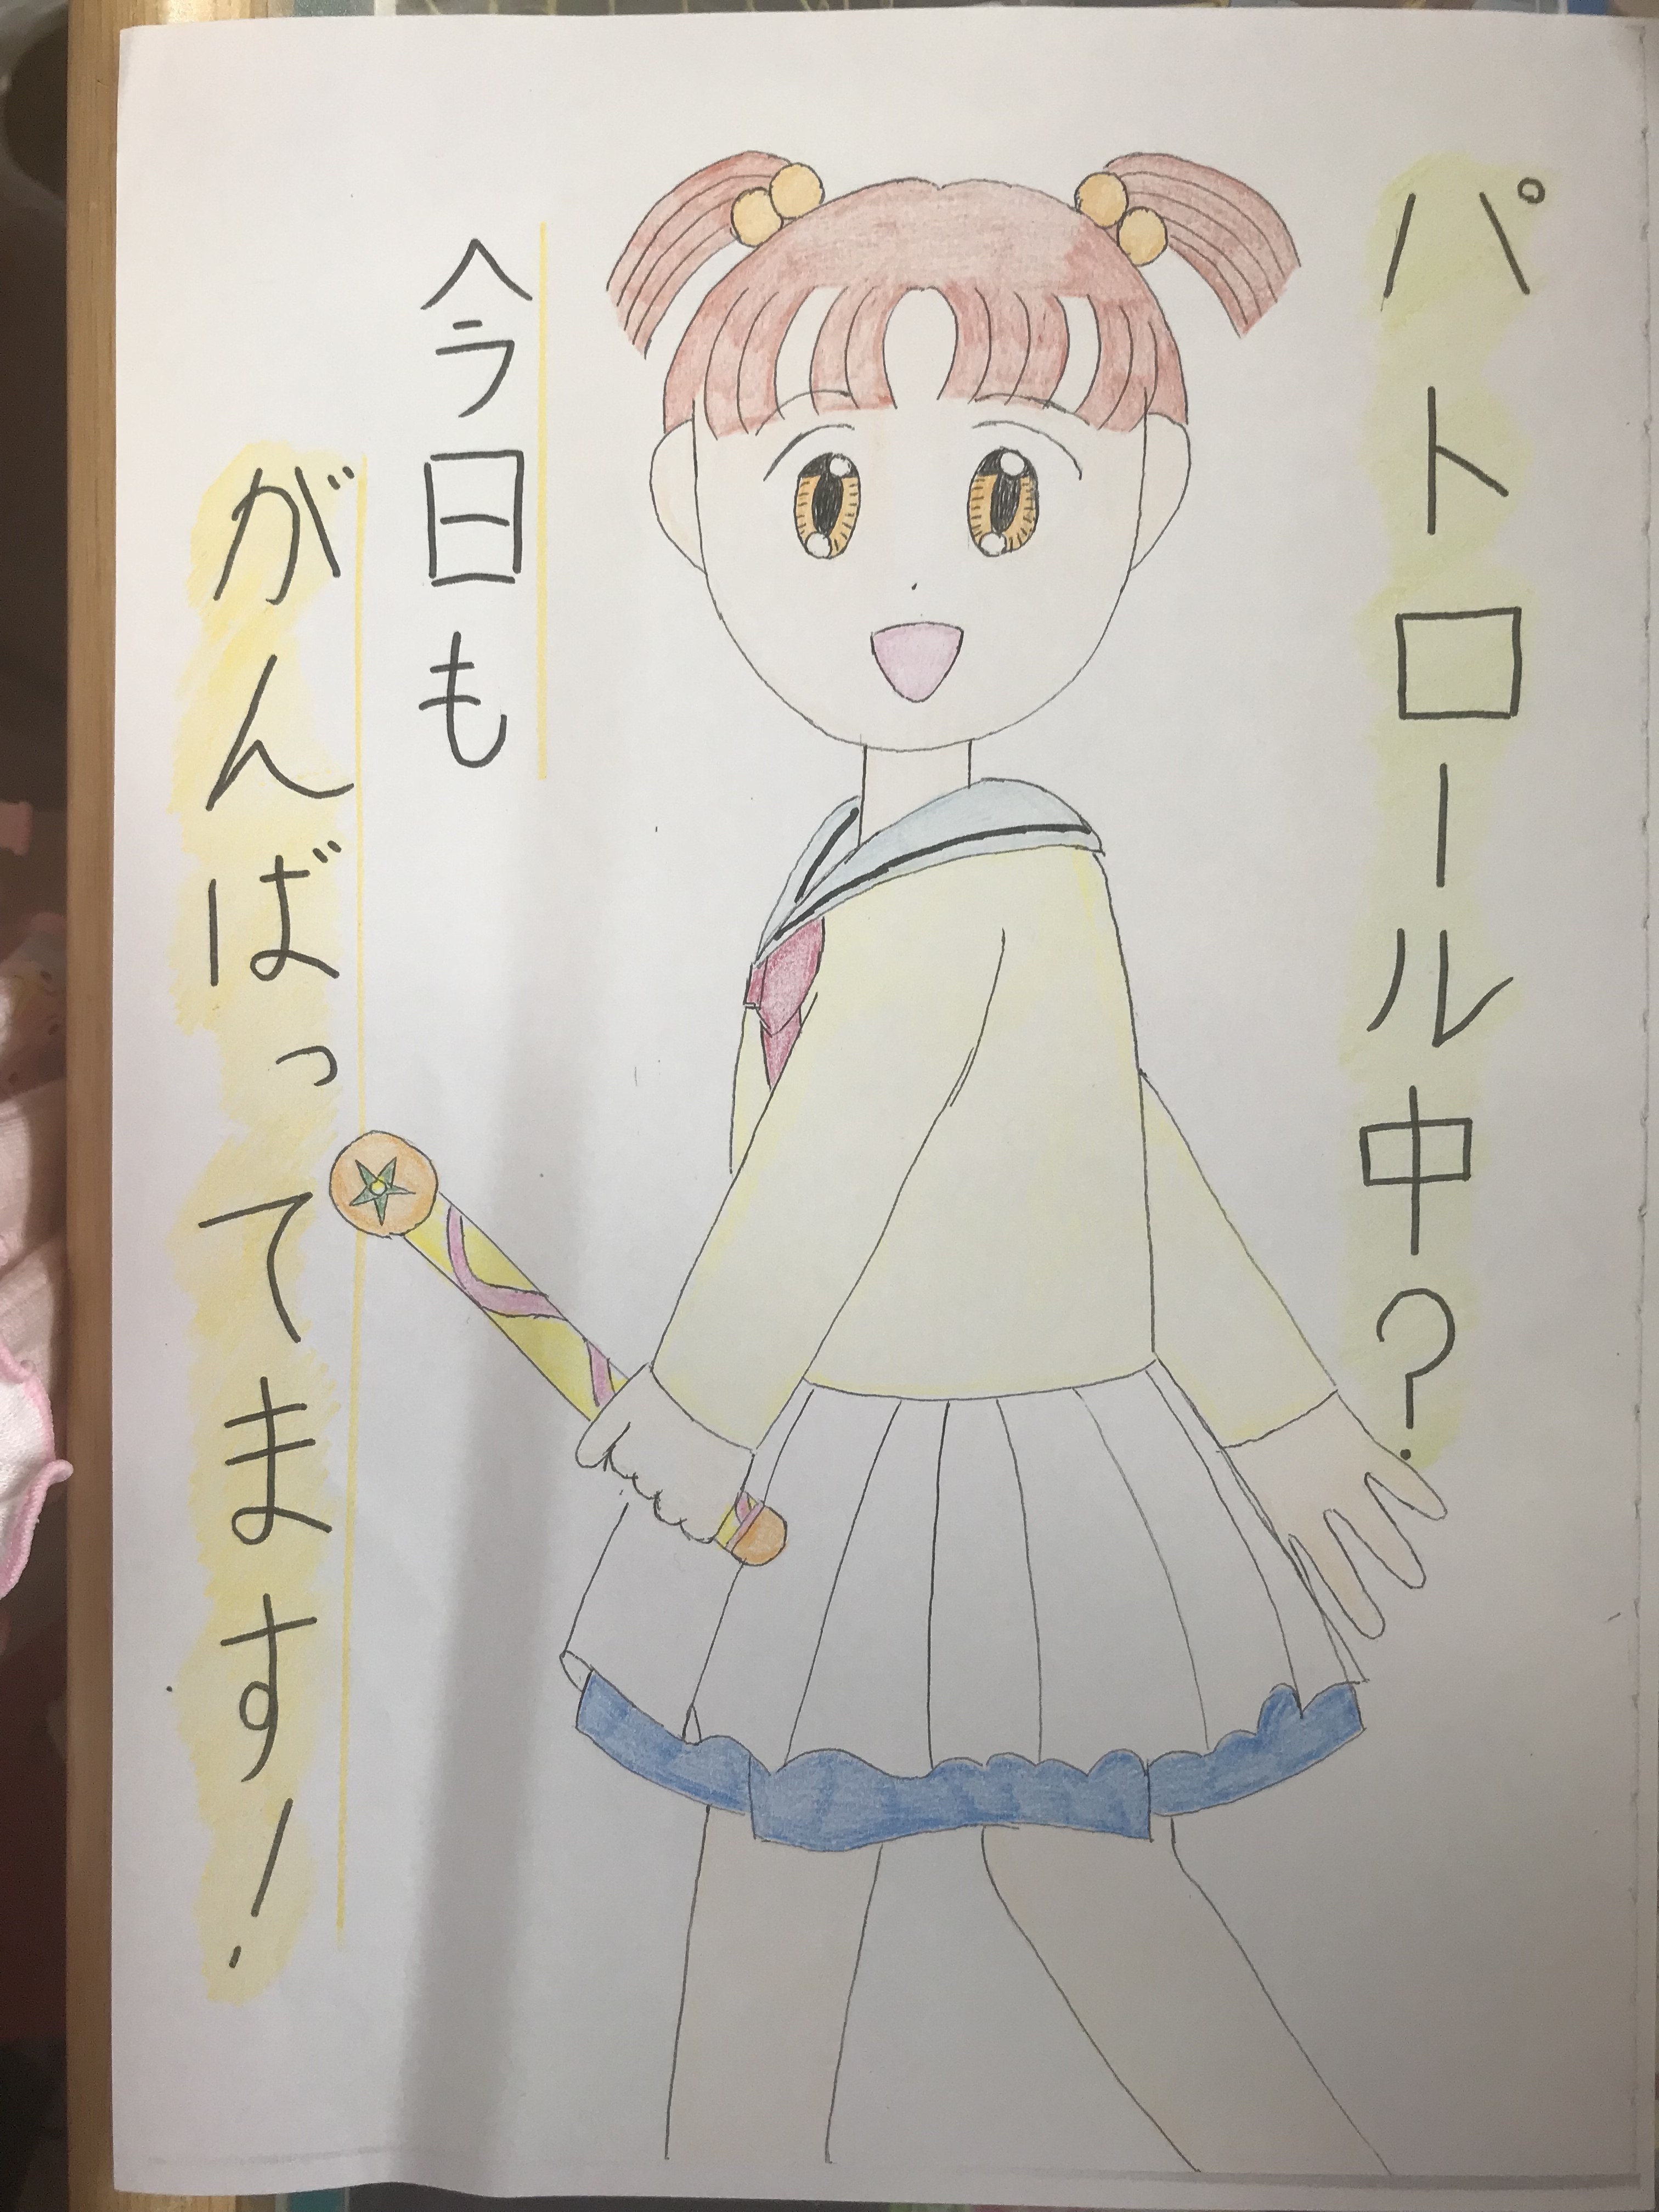 パトロール中?
今日も
がんばってます!